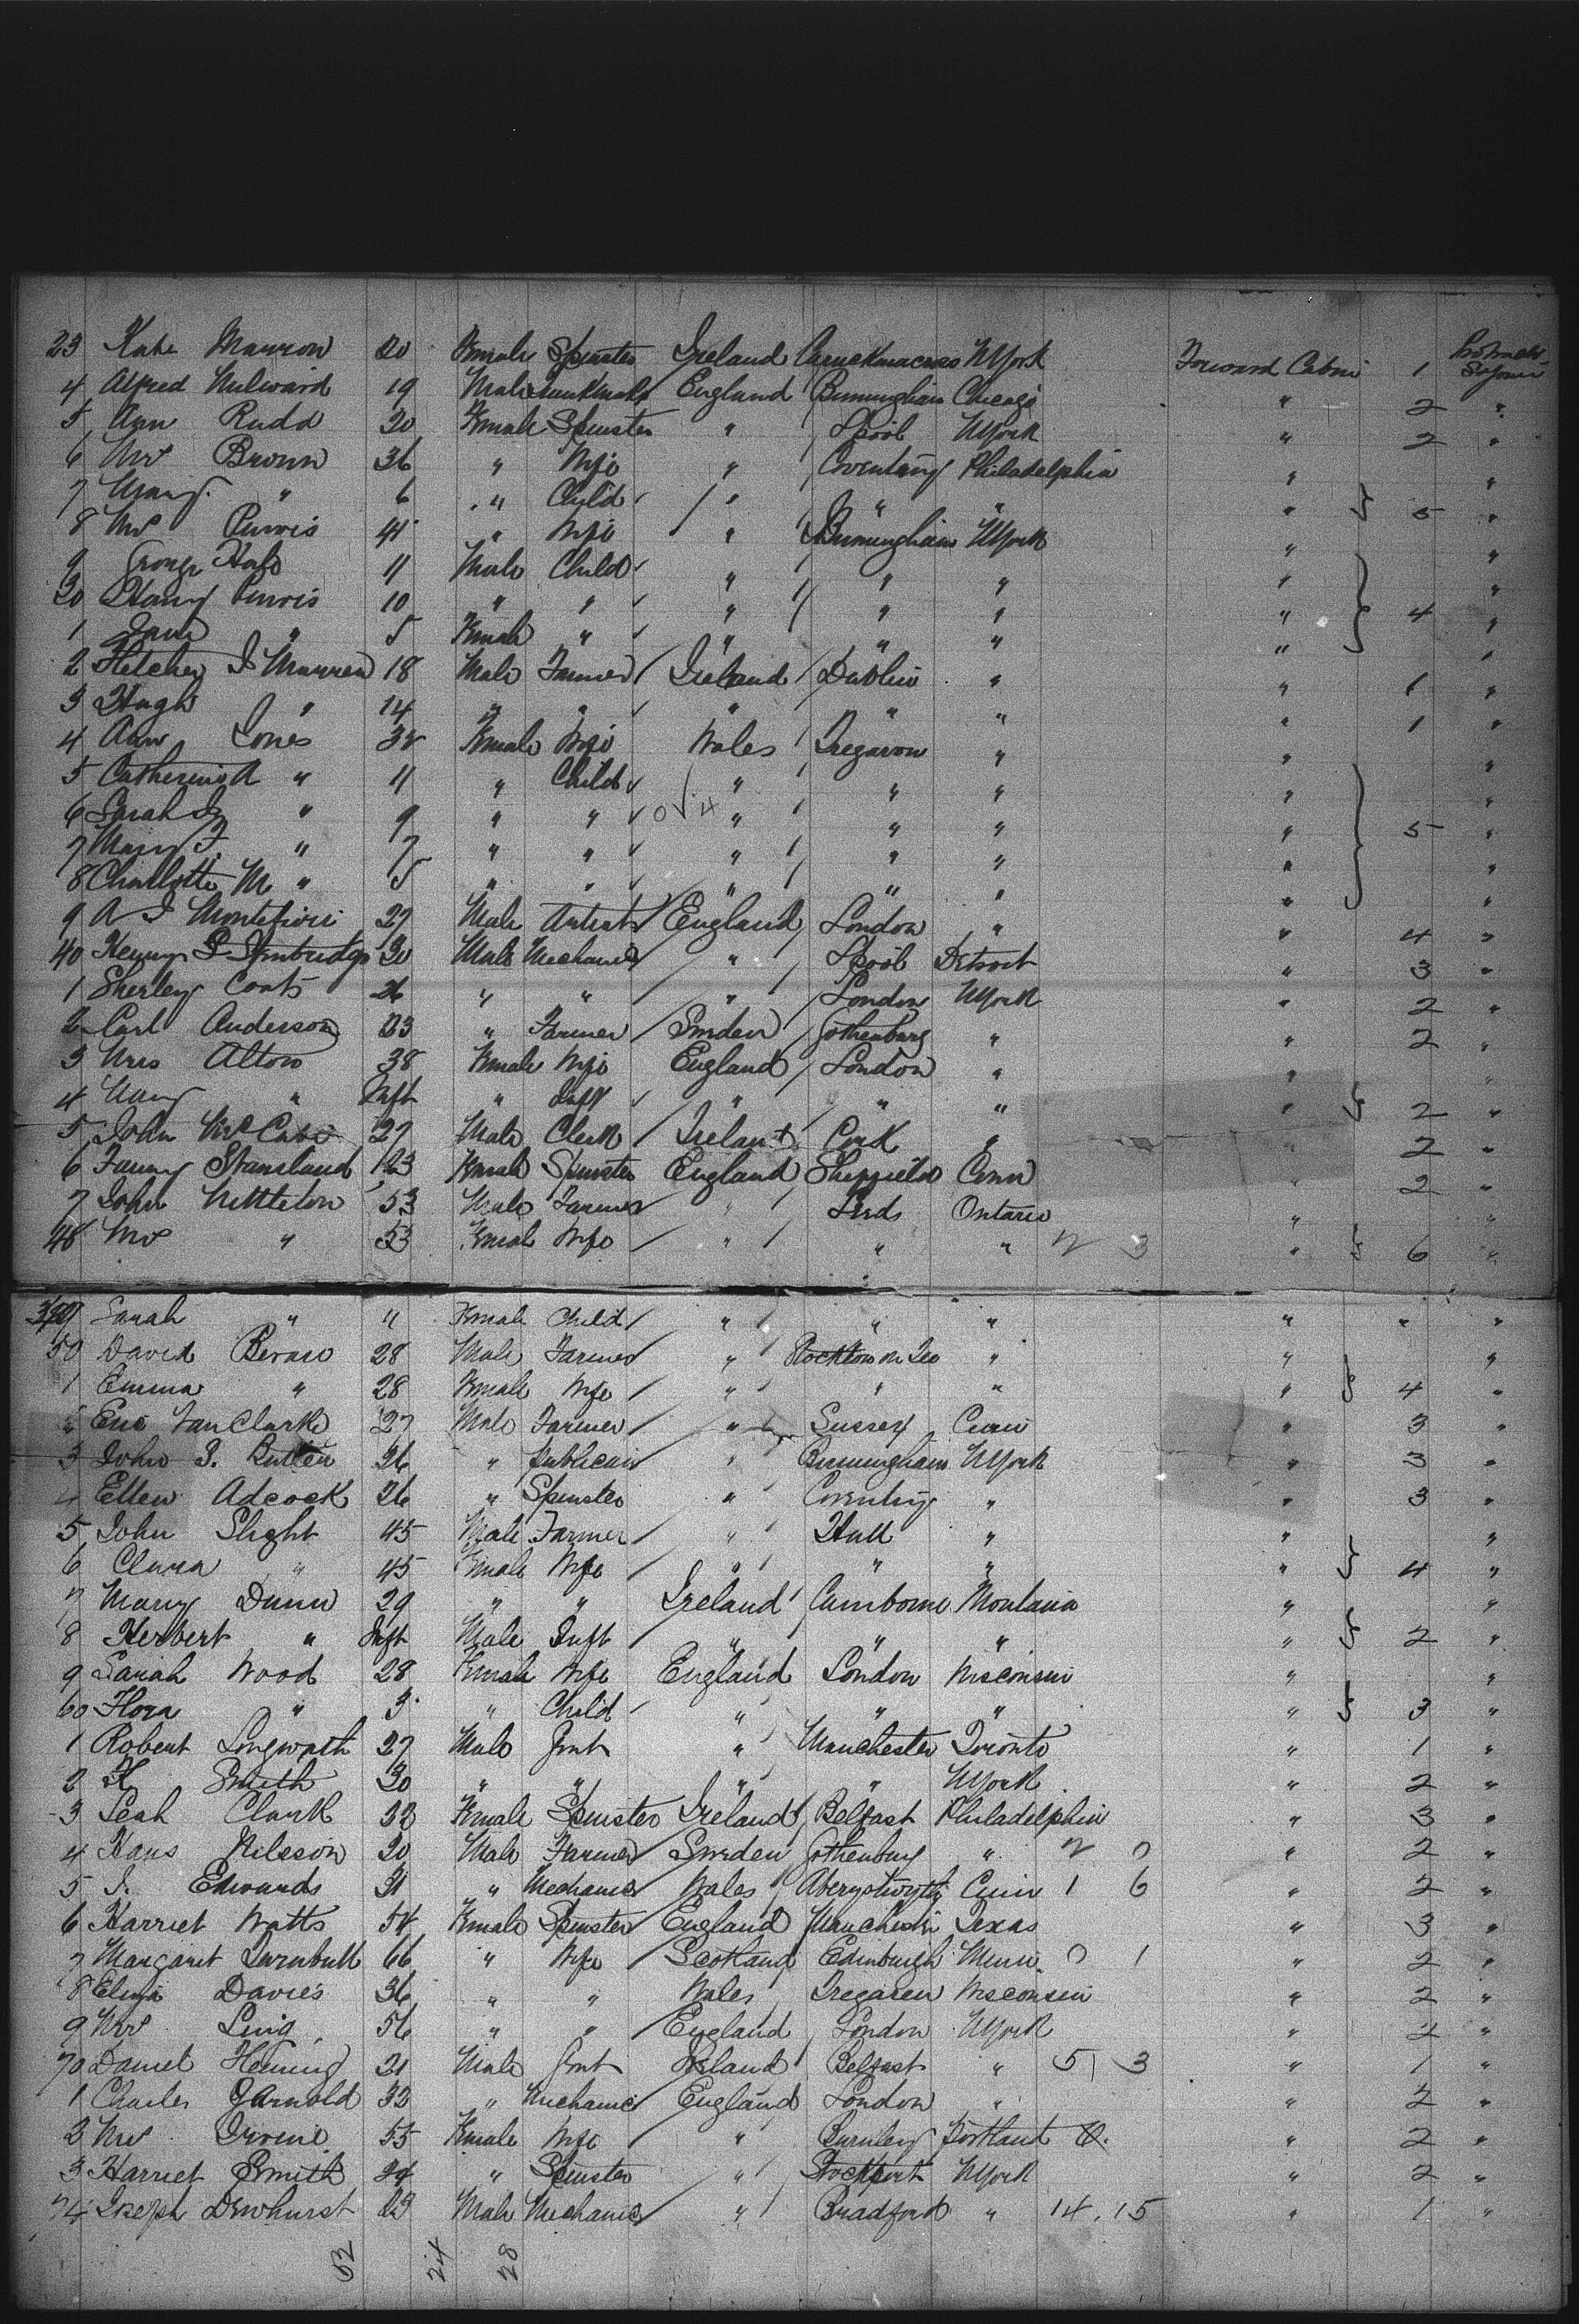 23 Kate 20 Female Spinster Ireland Carrickmacross NYork Forward Cabin 1 Protracted Sojourn
4 Alfred Milward 19 Male England Birmingham Chicago " 2 "
5 Ann Rudd 20 Female Spinster " Lpool NYork " 2 "
6 Mrs Brown 36 " Wife " Coventry Philadelphia " "
7 " 6 " Child " " " " 5 "
8 Mrs Purvis 41 " Wife " Birmingham NYork " "
9 George 11 Male Child " " " " "
30 Harry Purvis 10 " " " " " " 4 "
1 Jane " 5 Female " " " " " "
2 Fletcher J 18 Male Farmer Ireland Dublin " " 1 "
3 Hugh " 14 " " " " " " 1 "
4 Ann Jones 38 Female Wife Wales Tregaron " " "
5 Catherine A " 11 " Child " " " " "
6 Sarah " 9 " " 0 4 " " " " 5 "
7 Mary J. " 7 " " " " " " "
8 Charlotte M " 5 " " " " " " "
9 A J Montefiori 27 Male Artist England London " " 4 "
40 Henry 30 Male Mechanic " Lpool Detroit " 3 "
1 Sherley Coats 26 " " " London NYork " 2 "
2 Carl Anderson 23 " Farmer Sweden Gothenburg " " 2 "
3 Mrs Alton 38 Female Wife England London " " "
4 " Inft " Inft " " " " 2 "
5 John McCabe 27 Male Clerk Ireland Cork " " 2 "
6 Fanny Stansland 23 Female Spinster England Sheffield Conn " 2 "
7 John Nettleton 53 Male Farmer " Leeds Ontario " "
48 Mrs " 53 Female Wife " " " 2 3 " 6 "
349 Sarah " 11 Female Child " " " " " "
50 David 28 Male Farmer " Stockton on Tees " " "
1 Emma " 28 Female Wife " " " " 4 "
" Clarke 27 Male Farmer " Sussex " 3 "
3 John S. 26 " Publican " Birmingham NYork " 3 "
4 Ellen Adcock 26 " Spinster " Coventry " " 3 "
5 John Slight 45 Male Farmer " Hull " " "
6 Clara " 45 Female Wife " " " " 4 "
7 Mary Dunn 29 " " Ireland Camborne Montana " "
8 Herbert " Inft Male Inft " " " " 2 "
9 Sarah Wood 28 Female Wife England London Wisconsin " "
60 Flora " 3 " Child " " " " 3 "
1 Robert Longworth 27 Male Gent " Manchester Toronto " 1 "
2 H Smith 30 " " " " NYork " 2 "
3 Leah Clark 32 Female Spinster Ireland Belfast Philadelphia " 3 "
4 Hans Nilsson 20 Male Farmer Sweden Gothenburg " 2 0 " 2 "
5 J. Edwards 31 " Mechanic Wales Aberystwyth 1 6 " 2 "
6 Harriet Watts 54 Female Spinster England Manchester Texas " 3 "
7 Margaret Turnbull 66 " Wife Scotland Edinburgh Minn 0 1 " 2 "
8 Eliza Davies 36 " " Wales Tregaren Wisconsin " 2 "
9 Mrs 56 " " England London NYork " 2 "
70 Daniel Fleming 21 Male Gent Ireland Belfast " 5 3 " 1 "
1 Charles J Arnold 32 " Mechanic England London " " 2 "
2 Mrs Irvine 55 Female Wife " Burnley Portland O. " 2 "
3 Harriet Smith 24 " Spinster " Stockport NYork " 2 "
74 Joseph Dewhurst 23 Male Mechanic " Bradford " 14 . 15 " 1 "
52 24 28